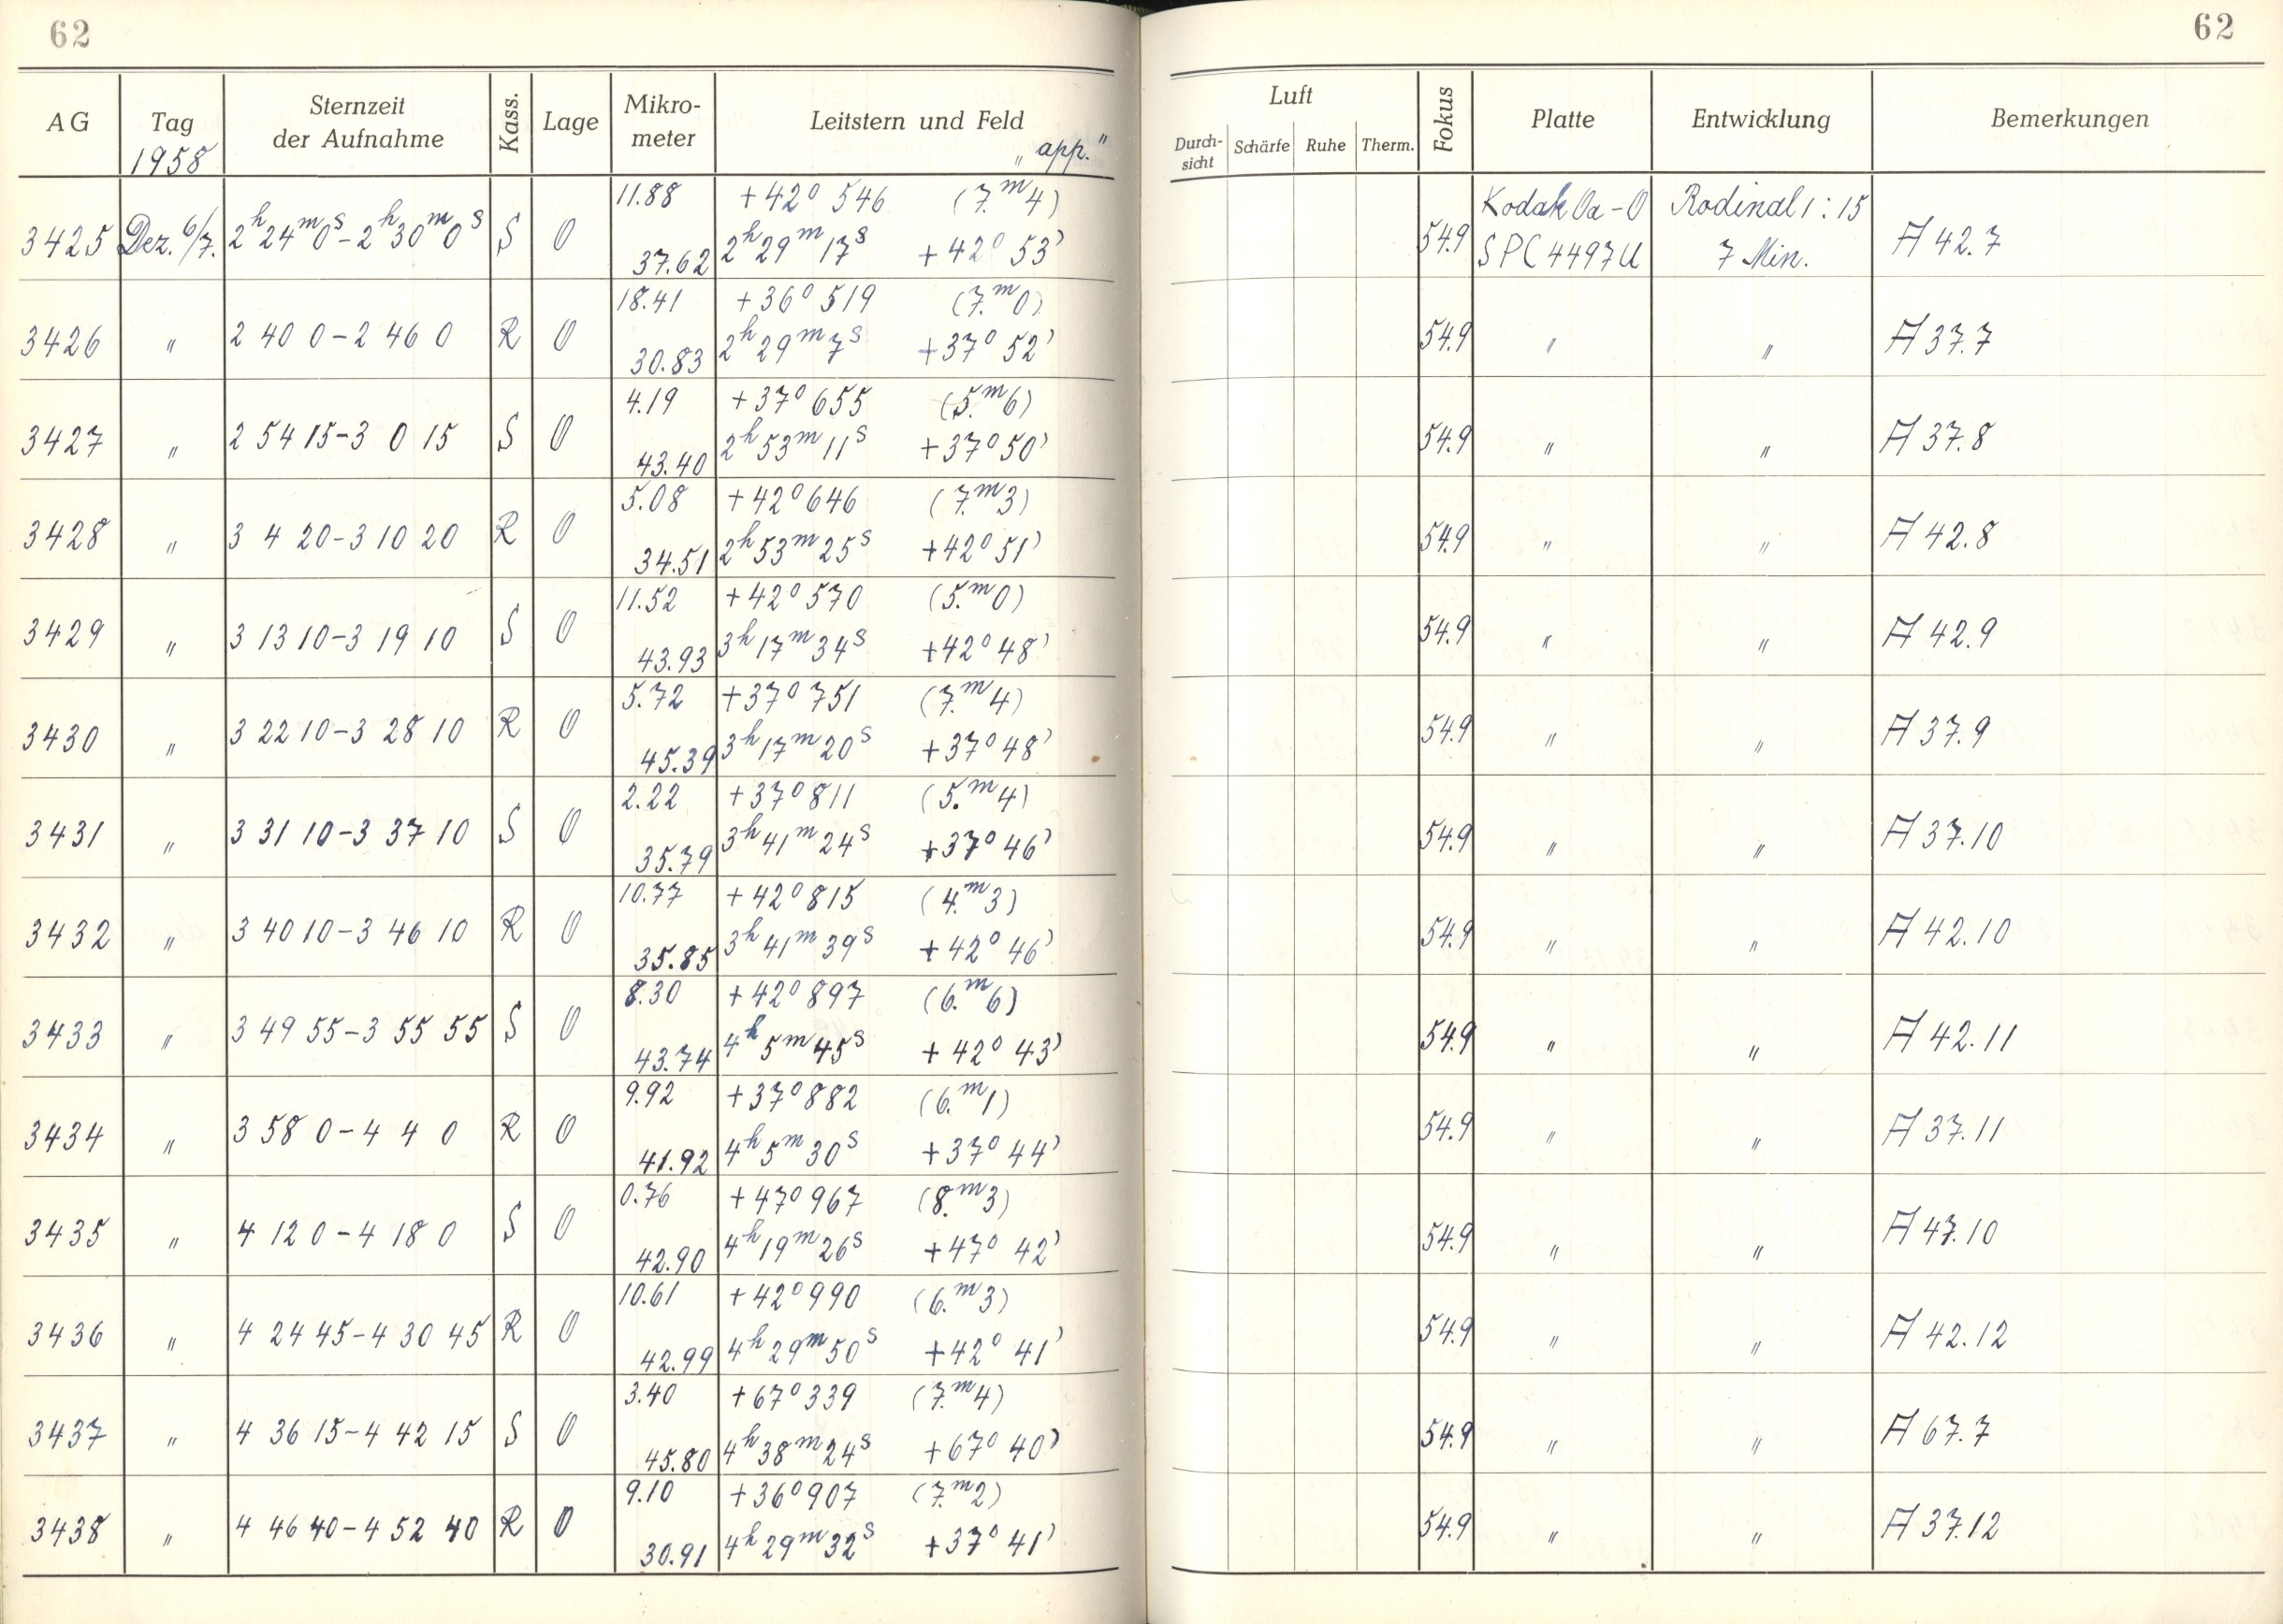 62
62
AG Tag Sternzeit der Aufnahme Kass. Lage Mikro-meter Leitstern und Feld
1958 „app."
Luft Fokus Platte Entwicklung Bemerkungen
Durch-sicht Schärfe Ruhe Therm.
11.88 +42° 546 (7.ᵐ4) Kodak Oa-O Rodinal 1:15
3425 Dez. 6/7. 2ʰ24ᵐ0ˢ-2ʰ30ᵐ0ˢ S O 37.62 2ʰ29ᵐ17ˢ +42° 53' 54.9 SPC4497U 7 Min. A 42.7
18.41 +36° 519 (7.ᵐ0)
3426 " 2 40 0-2 46 0 R O 30.83 2ʰ29ᵐ7ˢ +37° 52' 54.9 " " A 37.7
4.19 +37° 655 (5.ᵐ6)
3427 " 2 54 15-3 0 15 S O 43.40 2ʰ53ᵐ11ˢ +37° 50' 54.9 " " A 37.8
5.08 +42° 646 (7.ᵐ3)
3428 " 3 4 20-3 10 20 R O 34.51 2ʰ53ᵐ25ˢ +42° 51' 54.9 " " A 42.8
11.52 +42° 570 (5.ᵐ0)
3429 " 3 13 10-3 19 10 S O 43.93 3ʰ17ᵐ34ˢ +42° 48' 54.9 " " A 42.9
5.72 +37° 751 (7.ᵐ4)
3430 " 3 22 10-3 28 10 R O 45.39 3ʰ17ᵐ20ˢ +37° 48' 54.9 " " A 37.9
2.22 +37° 811 (5.ᵐ4)
3431 " 3 31 10-3 37 10 S O 35.79 3ʰ41ᵐ24ˢ +37° 46' 54.9 " " A 37.10
10.77 +42° 815 (4.ᵐ3)
3432 " 3 40 10-3 46 10 R O 35.85 3ʰ41ᵐ39ˢ +42° 46' 54.9 " " A 42.10
8.30 +42° 897 (6.ᵐ6)
3433 " 3 49 55-3 55 55 S O 43.74 4ʰ5ᵐ45ˢ +42° 43' 54.9 " " A 42.11
9.92 +37° 882 (6.ᵐ1)
3434 " 3 58 0-4 4 0 R O 41.92 4ʰ5ᵐ30ˢ +37° 44' 54.9 " " A 37.11
0.76 +47° 967 (8.ᵐ3)
3435 " 4 12 0-4 18 0 S O 42.90 4ʰ19ᵐ26ˢ +47° 42' 54.9 " " A 47.10
10.61 +42° 990 (6.ᵐ3)
3436 " 4 24 45-4 30 45 R O 42.99 4ʰ29ᵐ50ˢ +42° 41' 54.9 " " A 42.12
3.40 +67° 339 (7.ᵐ4)
3437 " 4 36 15-4 42 15 S O 45.80 4ʰ38ᵐ24ˢ +67° 40' 54.9 " " A 67.7
9.10 +36° 907 (7.ᵐ2)
3438 " 4 46 40-4 52 40 R O 30.91 4ʰ29ᵐ32ˢ +37° 41' 54.9 " " A 37.12